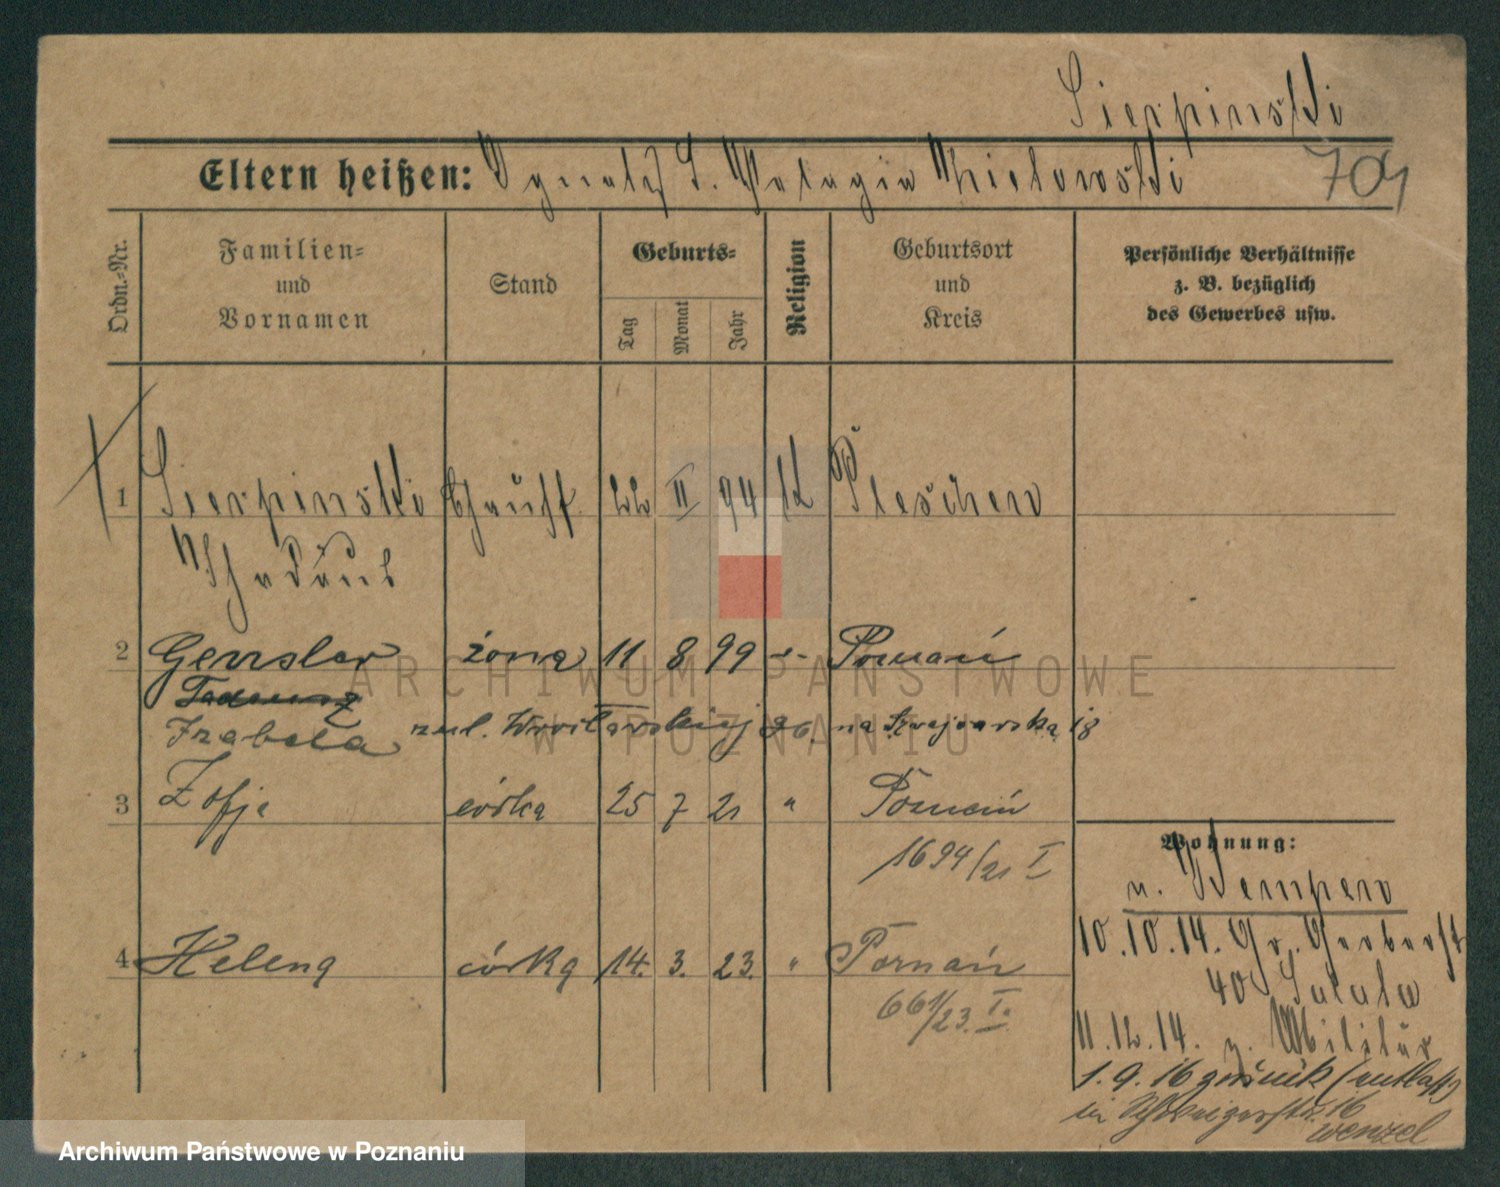 Sierpinski
Eltern heißen: Ignatz S. Pelagia Mielowski
704
Ordn.=Nr.
Familien=
und
Vornamen
Stand
Geburts=
Tag
Monat
Jahr
Religion
Geburtsort
und
Kreis
Persönliche Verhältnisse
z. B. bezüglich
des Gewerbes usw.
1 Sierpinski 22 II 94 k Pleschen
Thadäus
2 Gensler żona 11 8 99 Poznań
Tadeusz
Izabela z ul. Wrocławskiej 36. na Szwajcarska 18
3 Zofja córka 25 7 21 " Poznań
1694/21 I
4 Helena córka 14. 3. 23. " Poznań
661/23. I.
Wohnung:
v. Kempen
10.10.14. Gr. Gerberst
40
11.12.14. z. Militär
1.9.16 zurück (entlass)
in 16
Wenzel
ARCHIWUM PAŃSTWOWE
W POZNANIU
Archiwum Państwowe w Poznaniu